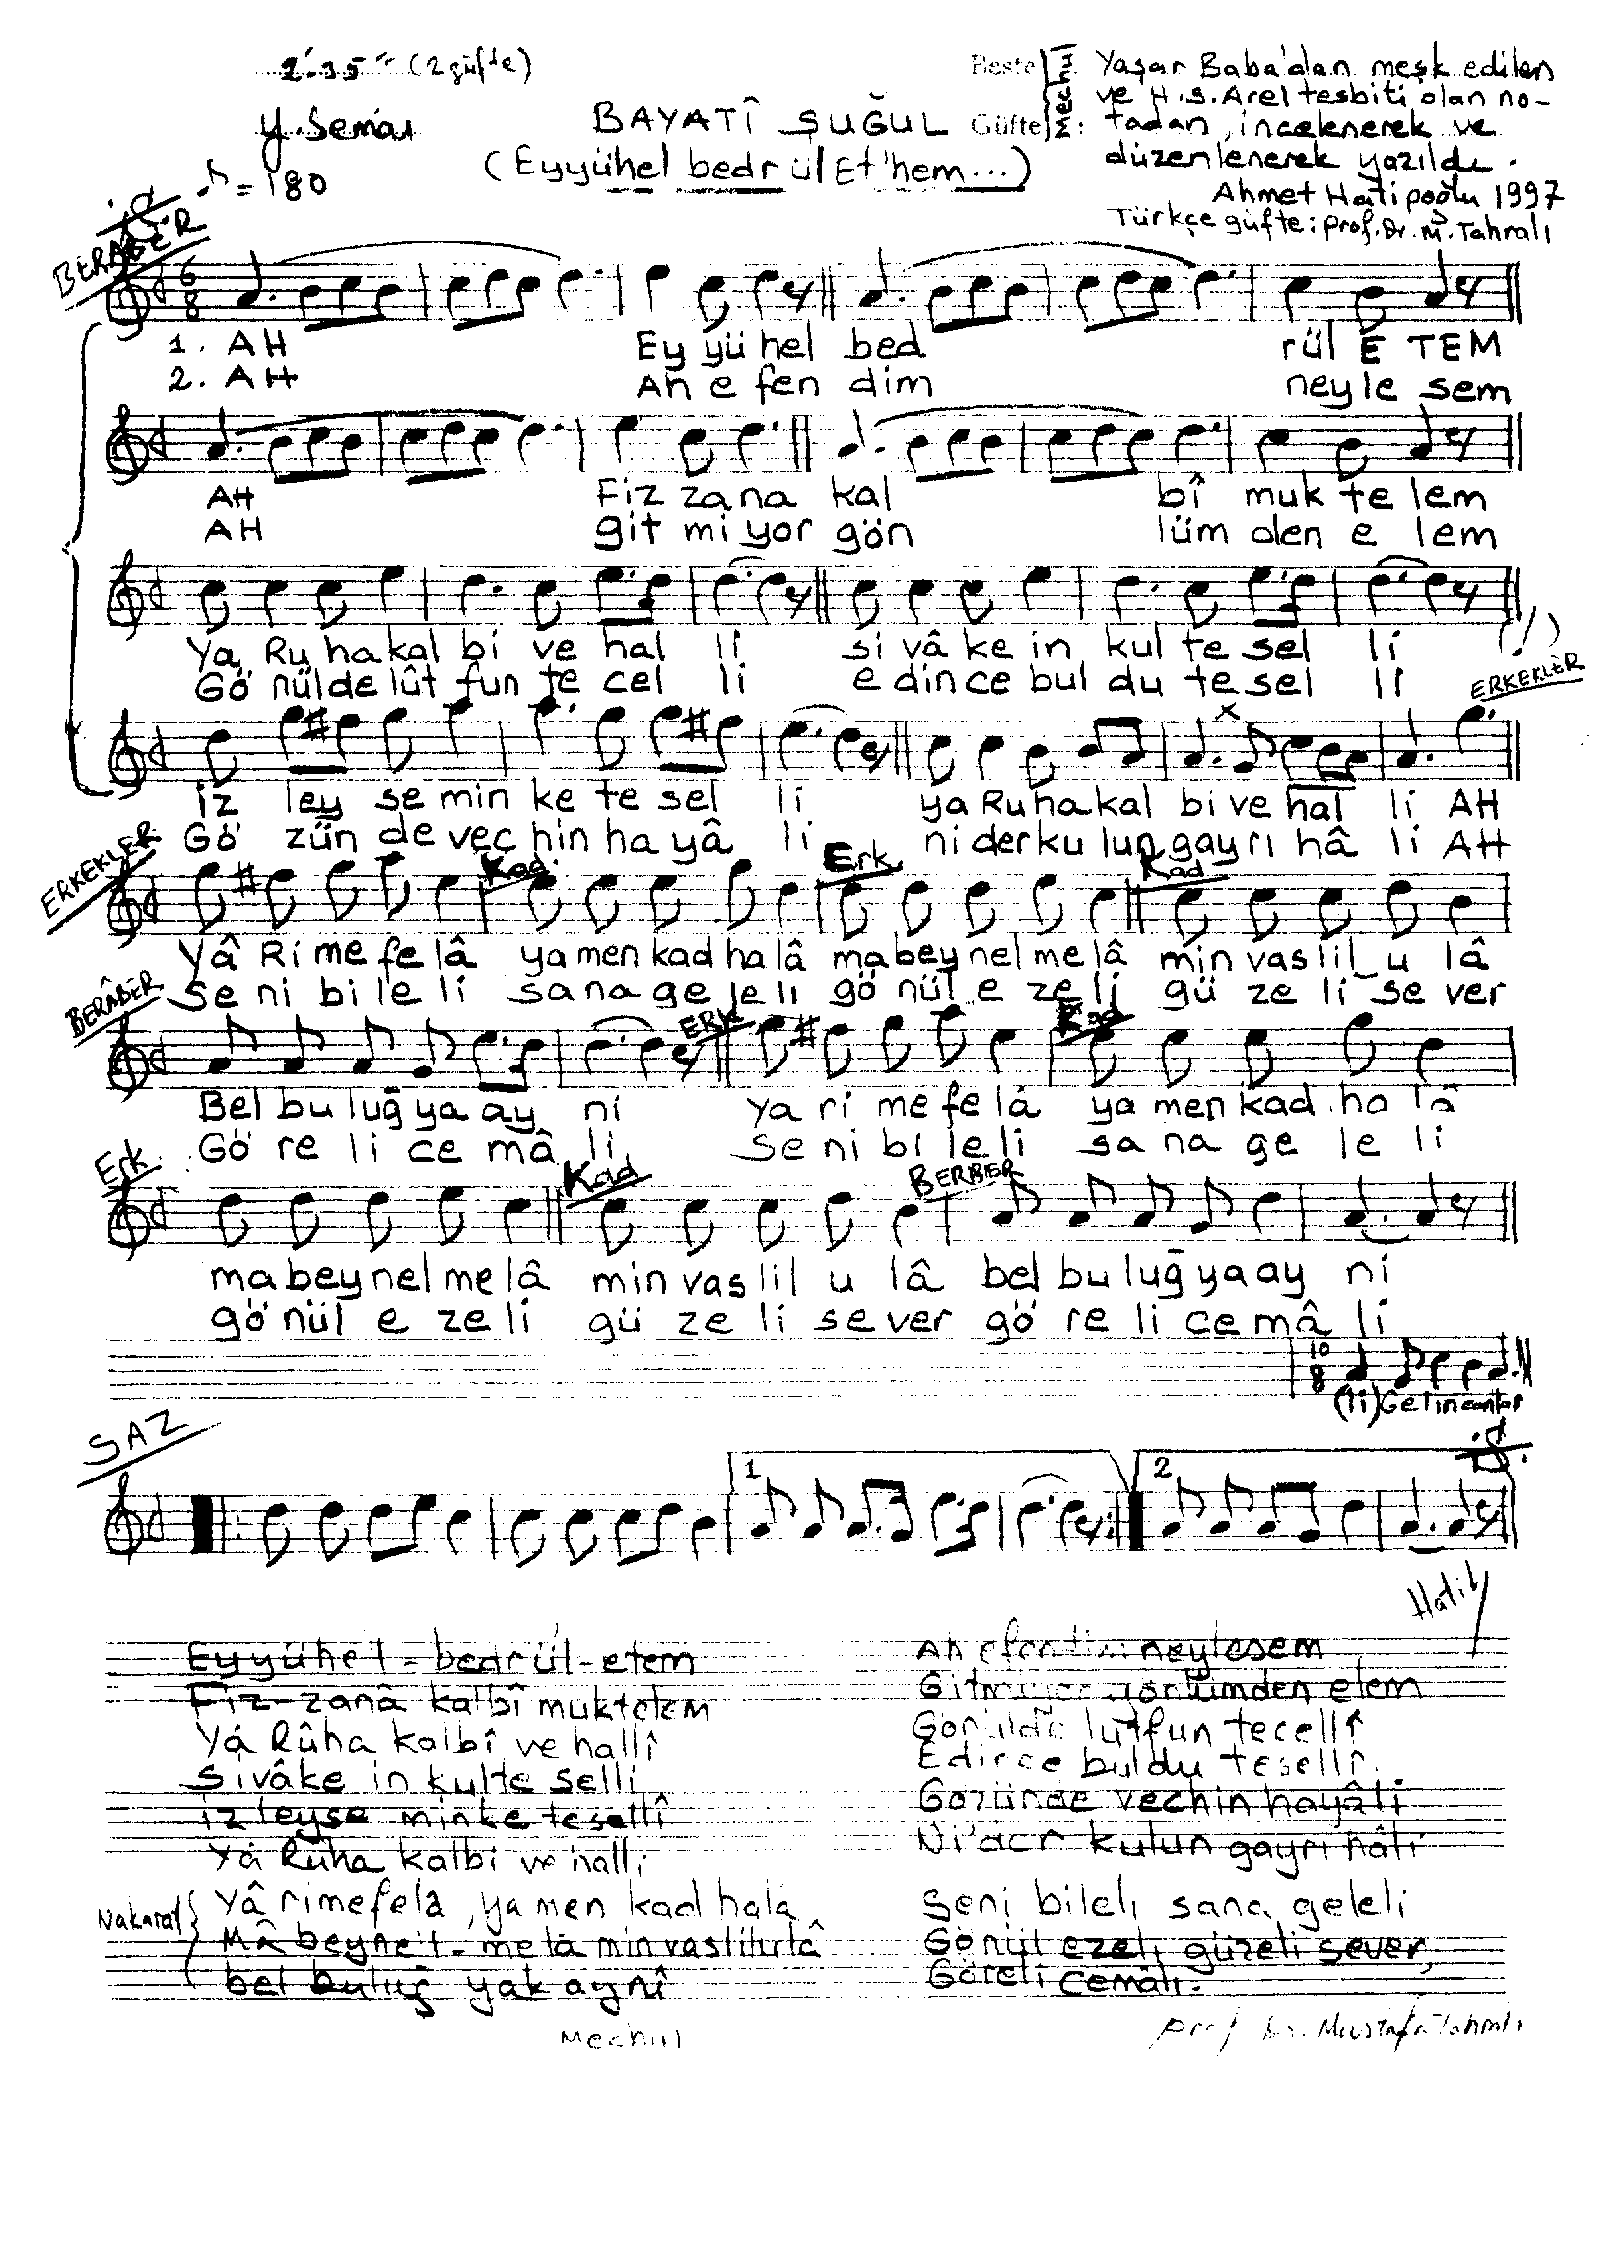 2'.35" (2 güfte)
Y. Semai
♪ = 180
BAYATÎ ŞUĞUL
(Eyyühel bedr ül Et'hem...)
Beste
Güfte
Meçhul
Yaşar Baba'dan meşk edilen
ve H.S. Arel tesbiti olan no-
tadan, incelenerek ve
düzenlenerek yazıldı.
Ahmet Hatipoğlu 1997
Türkçe güfte: Prof. Dr. M. Tahralı
BERÂBER
6
8
1. AH Ey yü hel bed rül E TEM
2. AH Ah e fen dim ney le sem
AH Fiz za na kal bî muk te lem
AH git mi yor gön lüm den e lem
Ya Ru ha kal bi ve hal li si vâ ke in kul te sel li (!)
Gö nül de lût fun te cel li e din ce bul du te sel li
ERKEKLER
iz ley se min ke te sel li ya Ru ha kal bi ve hal li AH
Gö zün de veç hin ha yâ li ni der ku lun gay rı hâ li AH
ERKEKLER Kad. Erk. Kad
Yâ Ri me fe lâ ya men kad ha lâ ma bey nel me lâ min vas lil u lâ
Se ni bi le li sa na ge le li gö nül e ze li gü ze li se ver
BERÂBER ERK Kad
Bel bu luğ ya ay ni ya ri me fe lâ ya men kad ha lâ
Gö re li ce mâ li Se ni bi le li sa na ge le li
Erk. Kad BERBER
ma bey nel me lâ min vas lil u lâ bel bu luğ ya ay ni
gö nül e ze li gü ze li se ver gö re li ce mâ li
10
8
(li) Gelin canlar
SAZ
1 2
Hatip
Eyyühel - bedr ül - etem
Fiz - zanâ kalbî muktelem
Yâ Rûha kalbî ve hallî
Sivâke in kulte selli
izleyse minke tesellî
Yâ Rûha kalbi ve halli
Nakarat { Yâ rimefelâ, ya men kad hala
Mâ beyne'l - melâ min vaslilulâ
bel buluğ yak aynî
Meçhul
Ah efendim neylesem
Gitmiyor gönlümden elem
Gönülde lutfun tecellî
Edince buldu tesellî.
Gözünde vechin hayâli
Ni'der kulun gayrı hâli
Seni bileli sana geleli
Gönül ezeli güzeli sever,
Göreli cemâli.
Prof Dr. Mustafa Tahralı